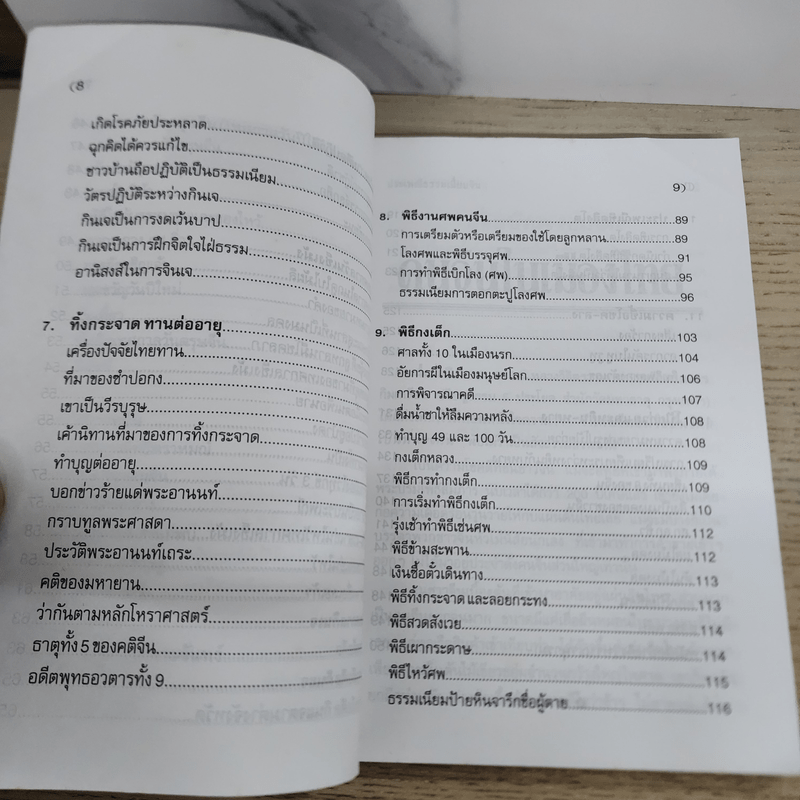 (8
เกิดโรคภัยประหลาด
ฉุกคิดได้ควรแก้ไข
ชาวบ้านถือปฏิบัติเป็นธรรมเนียม
วัตรปฏิบัติระหว่างกินเจ
กินเจเป็นการงดเว้นบาป
กินเจเป็นการฝึกจิตใจใฝ่ธรรม
อานิสงส์ในการจินเจ
7. ทิ้งกระจาด ทานต่ออายุ
เครื่องปัจจัยไทยทาน
ที่มาของซำปอกง
เขาเป็นวีรบุรุษ
เค้านิทานที่มาของการทิ้งกระจาด
ทำบุญต่ออายุ
บอกข่าวร้ายแด่พระอานนท์
กราบทูลพระศาสดา
ประวัติพระอานนท์เถระ
คติของมหายาน
ว่ากันตามหลักโหราศาสตร์
ธาตุทั้ง 5 ของคติจีน
อดีตพุทธอวตารทั้ง 9
9)
8. พิธีงานศพคนจีน 89
การเตรียมตัวหรือเตรียมของใช้โดยลูกหลาน 89
โลงศพและพิธีบรรจุศพ 91
การทำพิธีเบิกโลง (ศพ) 95
ธรรมเนียมการตอกตะปูโลงศพ 96
9. พิธีกงเต็ก 103
ศาลทั้ง 10 ในเมืองนรก 104
อัยการผีในเมืองมนุษย์โลก 106
การพิจารณาคดี 107
ดื่มน้ำชาให้ลืมความหลัง 108
ทำบุญ 49 และ 100 วัน 108
กงเต็กหลวง 109
พิธีการทำกงเต็ก 109
การเริ่มทำพิธีกงเต็ก 110
รุ่งเช้าทำพิธีเซ่นศพ 112
พิธีข้ามสะพาน 112
เงินซื้อตั๋วเดินทาง 113
พิธีทิ้งกระจาด และลอยกระทง 113
พิธีสวดสังเวย 114
พิธีเผากระดาษ 114
พิธีไหว้ศพ 115
ธรรมเนียมป้ายหินจารึกชื่อผู้ตาย 116